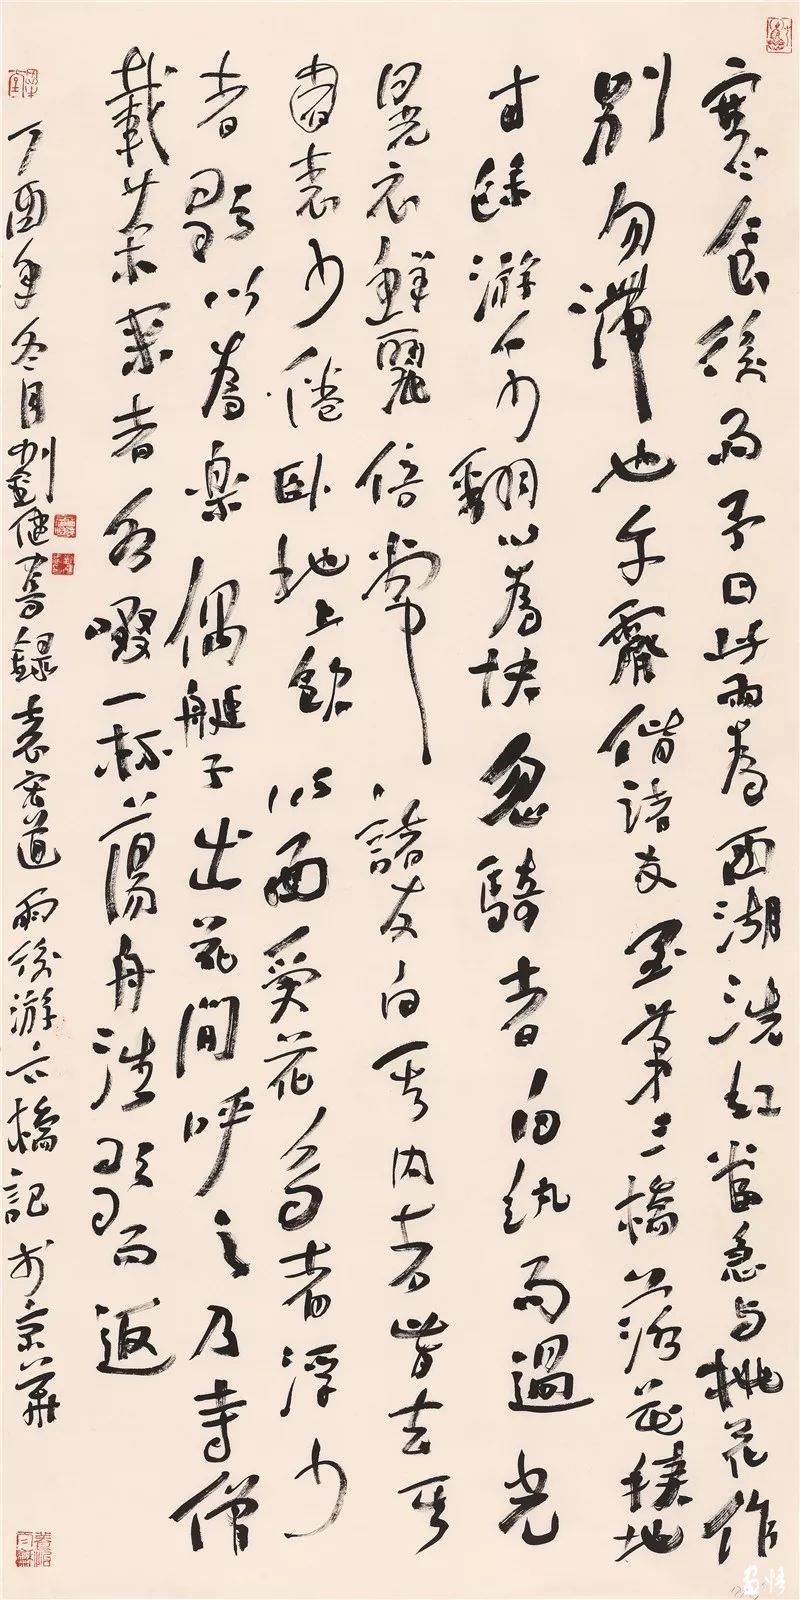 寒食後雨予曰此雨為西湖洗紅當急與桃花作
別勿滯也午霽偕諸友至第三橋落花積地
寸餘游人少翻以為快忽騎者白紈而過光
晃衣鮮麗倍常諸友白其內者皆去其
表少倦臥地上飲以面受花多者浮少
者歌以為樂偶艇子出花間呼之乃寺僧
載茶來者各啜一杯蕩舟浩歌而返
丁酉年冬月劉健錄袁宏道雨後游六橋記於京華